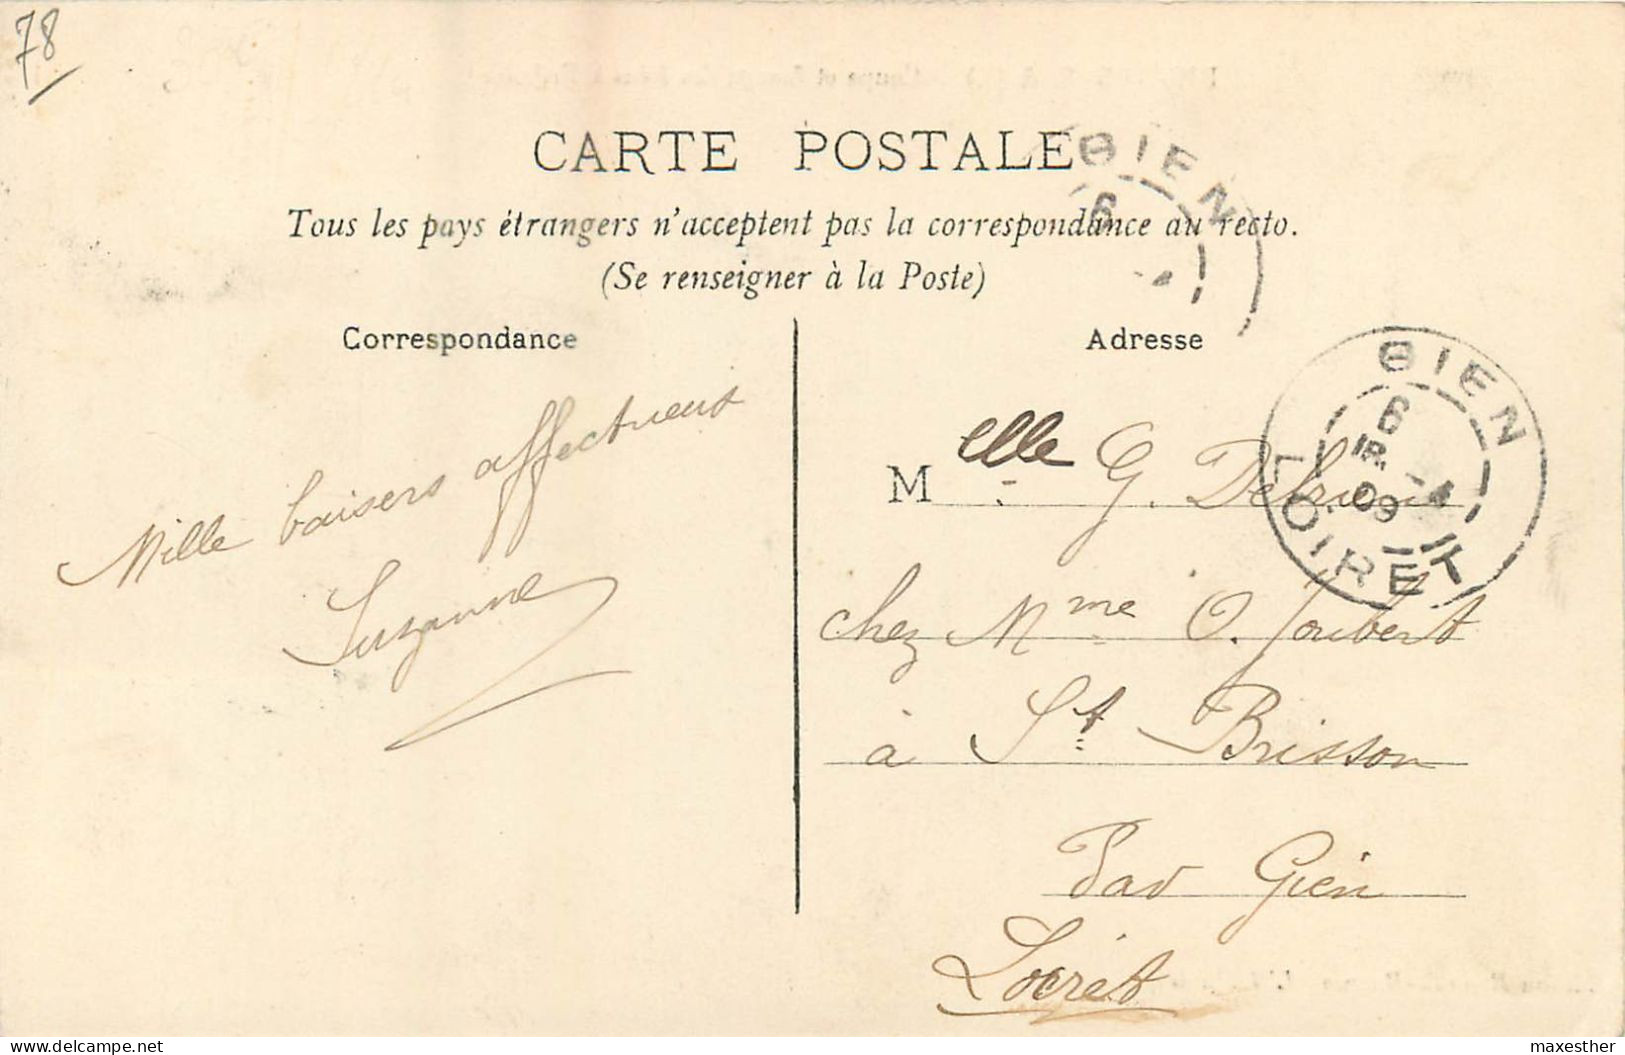 78
CARTE POSTALE
Tous les pays étrangers n'acceptent pas la correspondance au recto.
(Se renseigner à la Poste)
Correspondance
Adresse
Mille baisers affectueux
Suzanne
Melle G.
chez Mme O. Joubert
à St Brisson
Par Gien
Loiret
GIEN
6
GIEN
6
-4
09
LOIRET
delcampe.net
maxesther